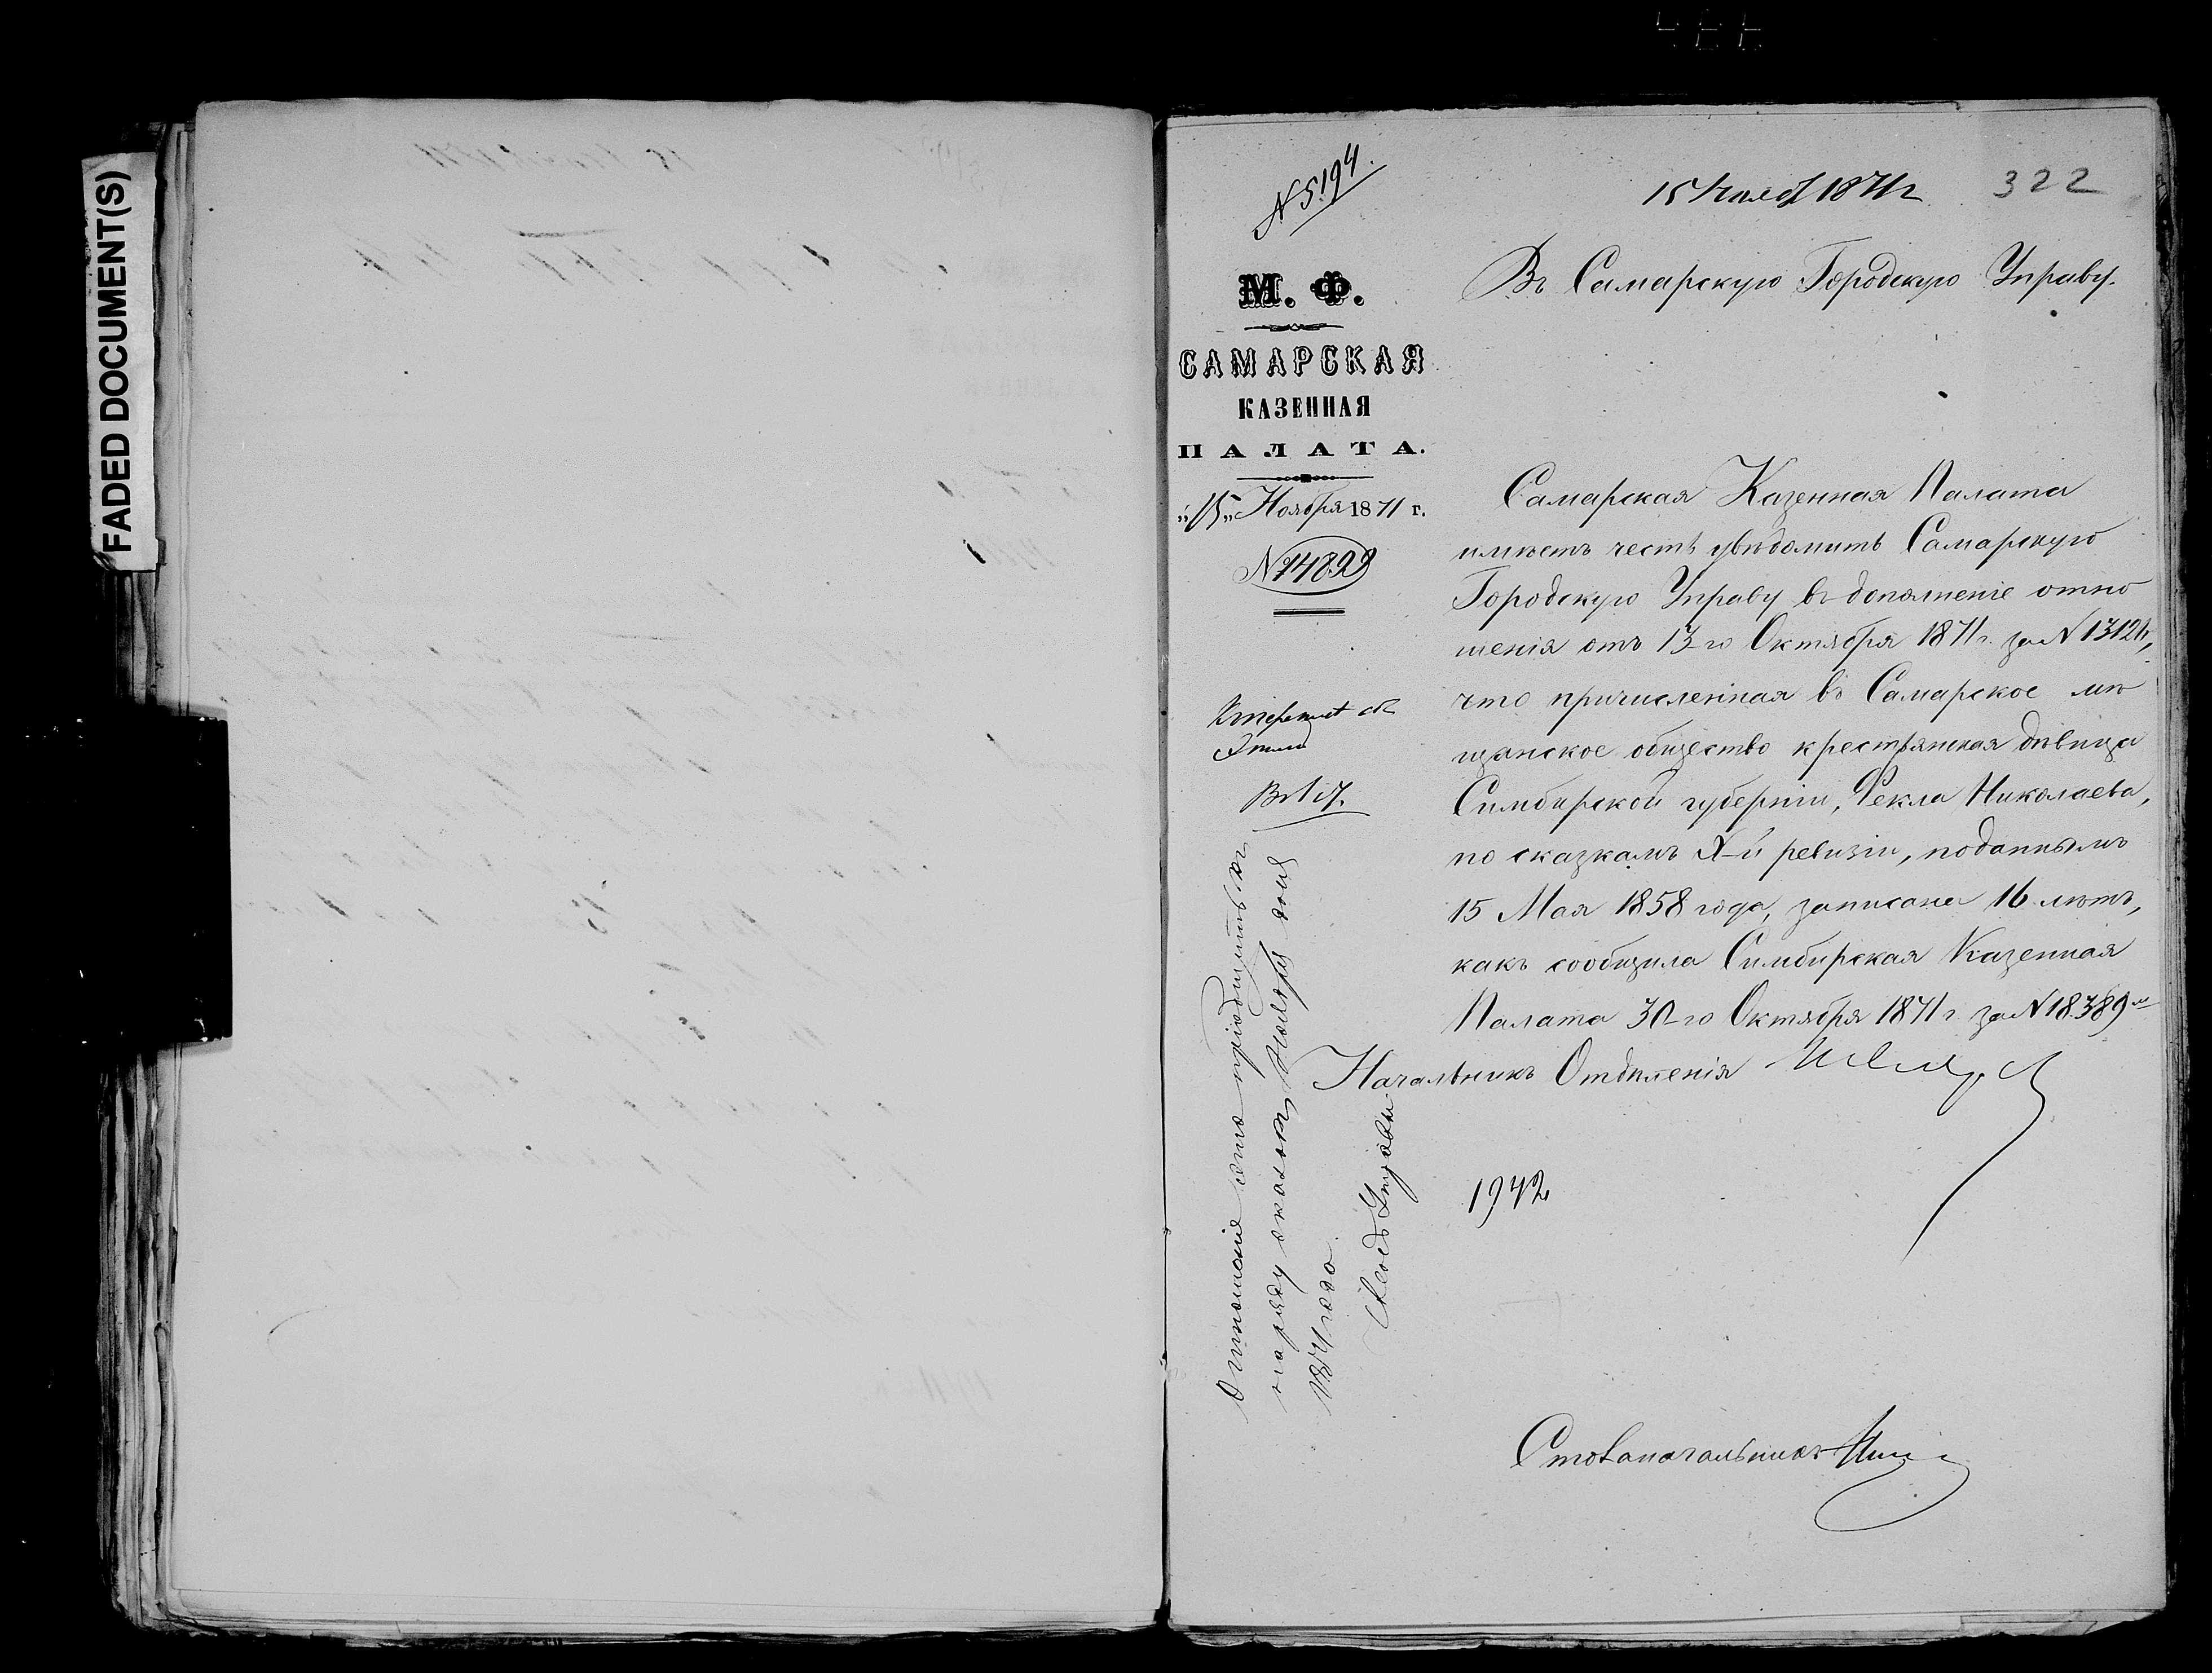 FADED DOCUMENT(S)
N 5194.
15 Нояб 1871 г
322
М. Ф.
САМАРСКАЯ
КАЗЕННАЯ
ПАЛАТА.
„15" Ноября 1871 г.
N 14829
Въ Самарскую Городскую Управу.
Самарская Казенная Палата
имѣетъ честь увѣдомить Самарскую
Городскую Управу въ дополненіе отно
шенія отъ 13-го Октября 1871 г. за N 13124,
что причисленная въ Самарское мѣ
щанское общество крестьянская дѣвица
Симбирской губерніи, Фекла Николаева,
по сказкамъ X-й ревизіи, поданнымъ
15 Мая 1858 года, записана 16 лѣтъ,
какъ сообщила Симбирская Казенная
Палата 30-го Октября 1871 г. за N 18389
Начальникъ Отдѣленія
1942
Столоначальникъ
Отношеніе это пріобщить къ
наряду Ноября дня
1871 года.
Управы